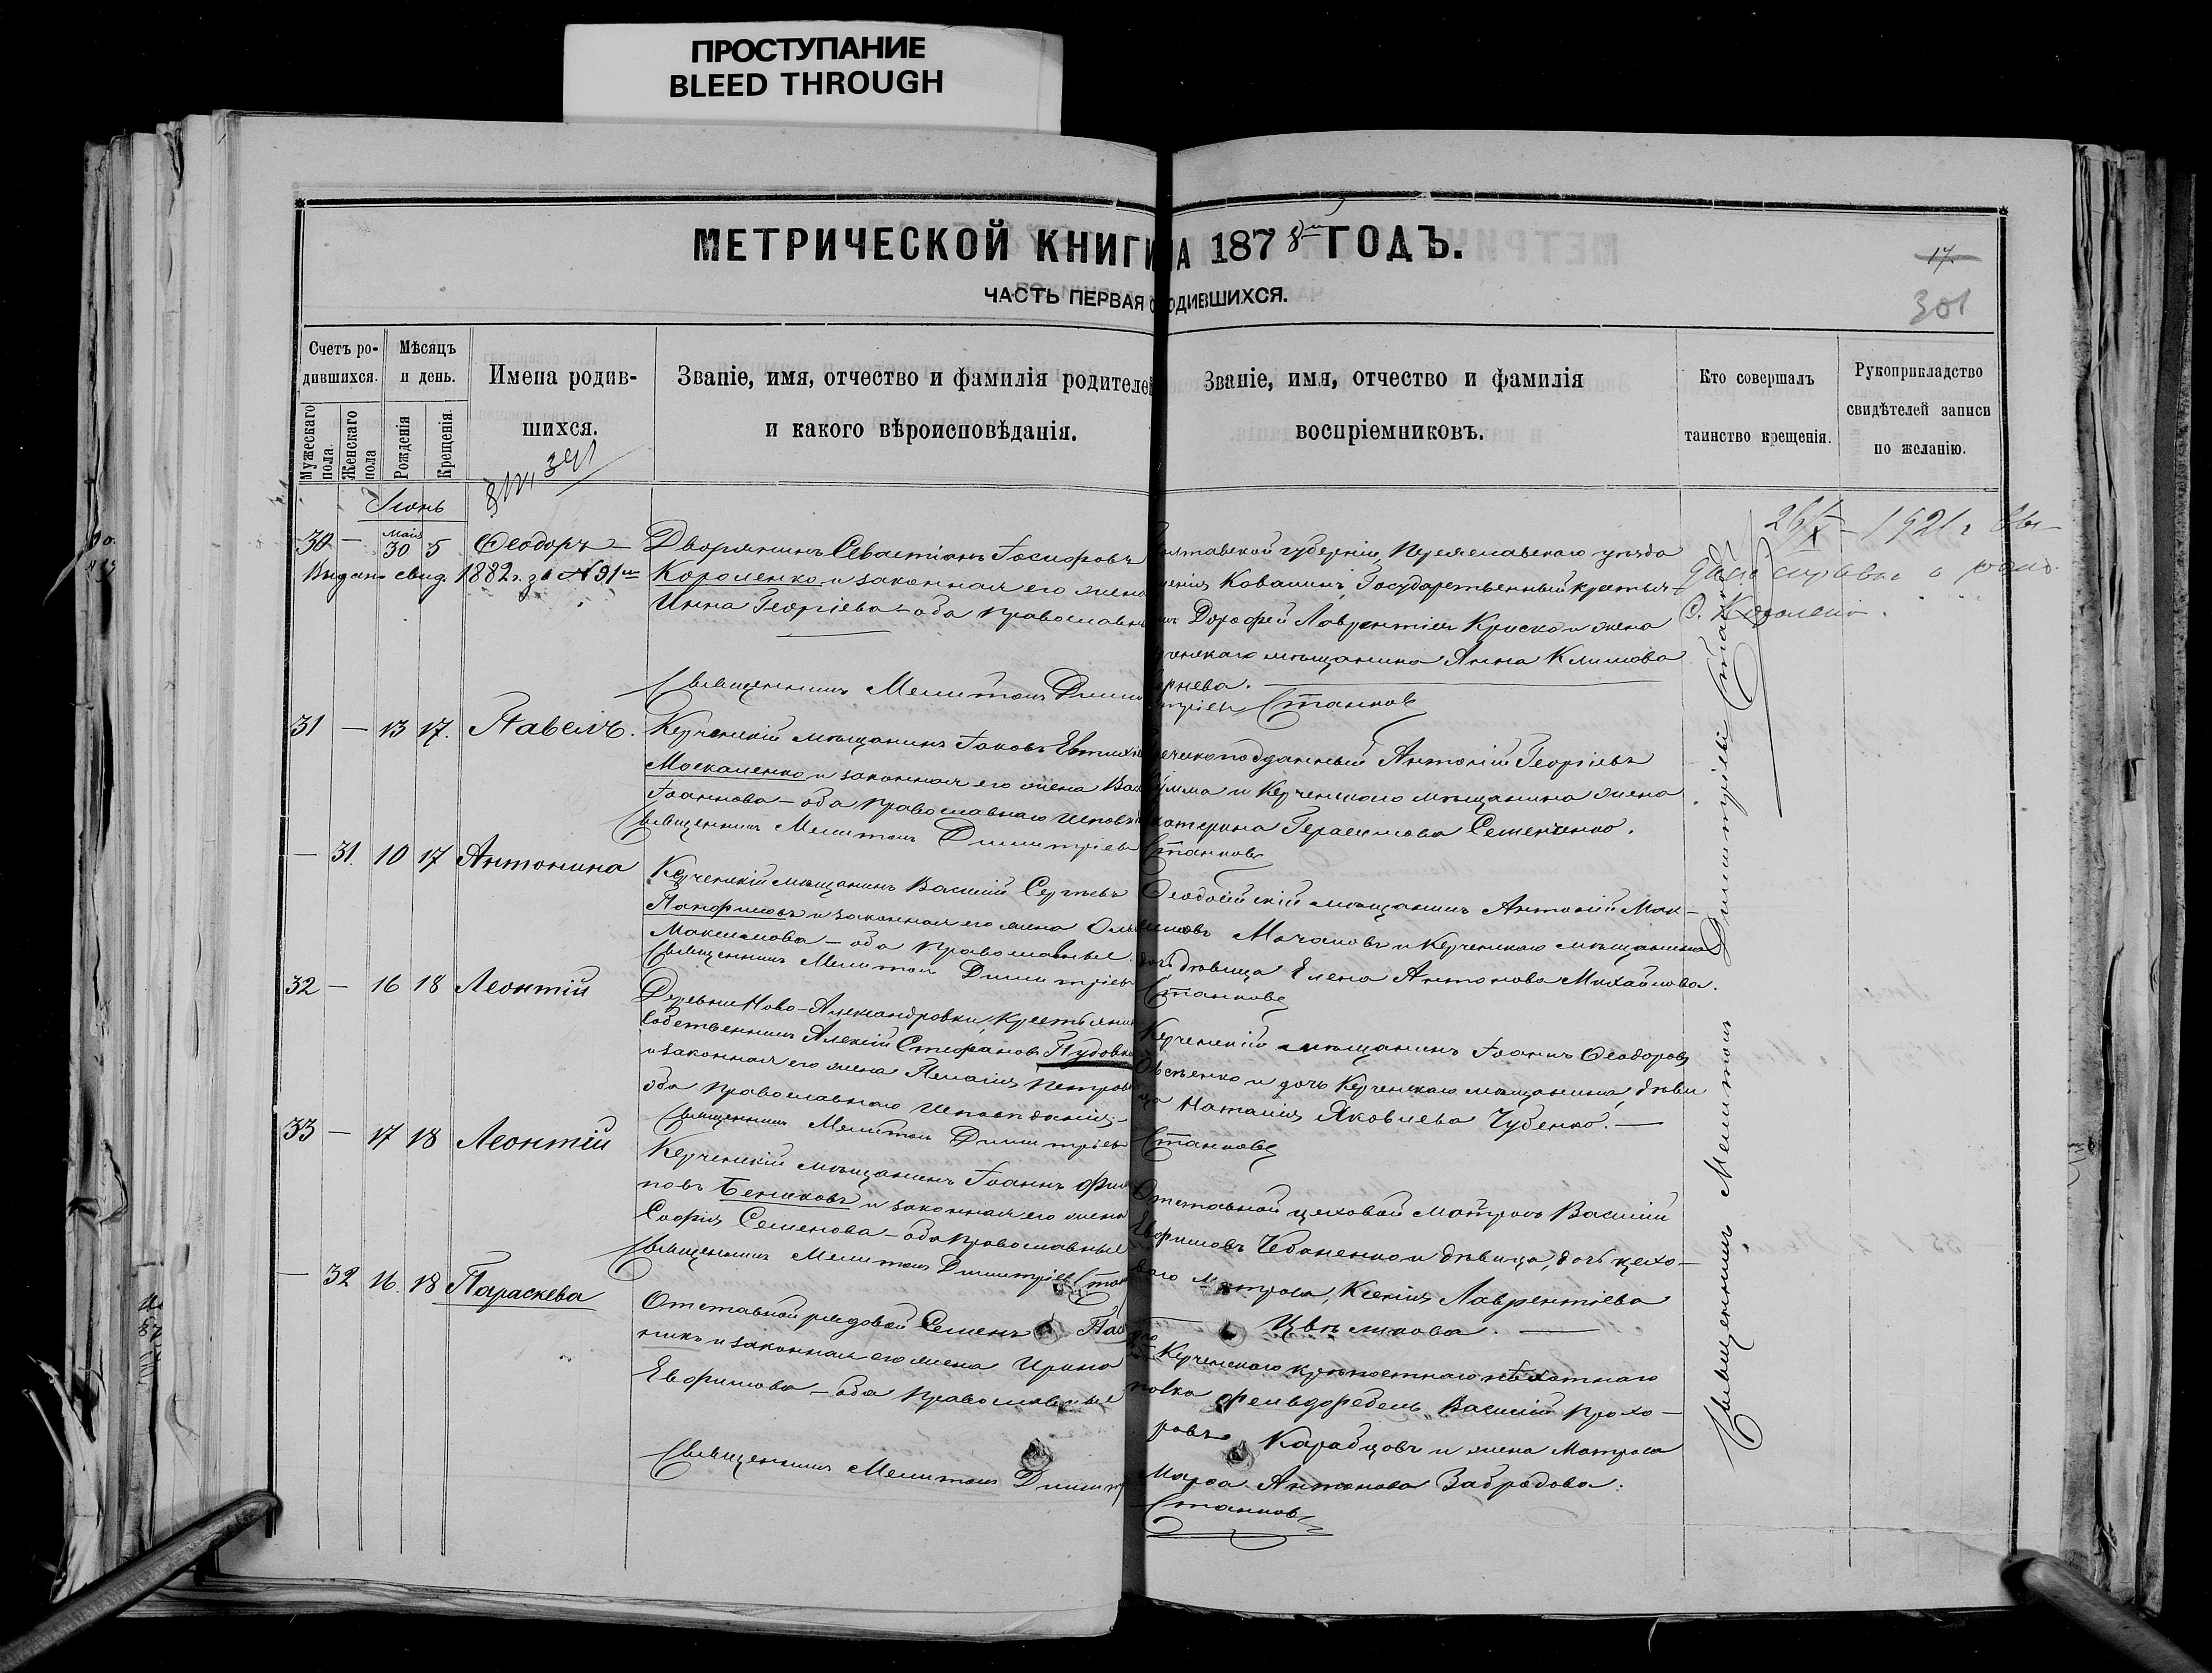 ПРОСТУПАНИЕ
BLEED THROUGH
МЕТРИЧЕСКОЙ КНИГИ НА 1878й ГОДЪ.
ЧАСТЬ ПЕРВАЯ О РОДИВШИХСЯ.
17
301
Счетъ ро-
дившихся.
Мужескаго пола.
Женскаго пола
Мѣсяцъ
и день.
Рожденія
Крещенія.
Имена родив-
шихся.
Званіе, имя, отчество и фамилія родителей
и какого вѣроисповѣданія.
Званіе, имя, отчество и фамилія
воспріемниковъ.
Кто совершалъ
таинство крещенія.
Рукоприкладство
свидѣтелей записи
по желанію.
Іюнь
30 — Мая 30 5 Ѳеодоръ —
Выдано свид. 1882 г. за № 91м
Дворянинъ Севастіанъ Іосифовъ
Короленко и законная его жена
Инна Георгіева — оба православн
олтавской губерніи, Переяславскаго уѣзда
Ковалинъ, Государственный крестья-
нъ Дорофей Лаврентіевъ Криско и жена
ченскаго мѣщанина Анна Климова
рнева. —
26/X – 1921 г.
Священникъ Мелитонъ Димитріевъ Станковъ
31 — 13 17. Павелъ.
Керченскій мѣщанинъ Іаковъ Евтихіе
Москаленко и законная его жена Вас
Іоаннова — оба православнаго исповѣд
реческоподданный Антоній Георгіевъ
и Керченскаго мѣщанина жена
катерина Герасимова Семенченко.
Священникъ Мелитонъ Димитріевъ Станковъ
— 31. 10 17 Антонина
Керченскій мѣщанинъ Василій Сергѣевъ
Панфиловъ и законная его жена Ольг
Максимова — оба православные.
Ѳеодосійскій мѣщанинъ Антоній Мак-
симовъ Мачановъ и Керченскаго мѣщанина
дочь дѣвица Елена Антонова Михайлова.
Священникъ Мелитонъ Димитріевъ Станковъ
32 — 16 18 Леонтій
Деревни Ново-Александровки, Крестьянин
Собственникъ Алексій Стефановъ Пудовк
и законная его жена Пелагія Петров
оба православнаго исповѣданія. —
Керченскій мѣщанинъ Іоаннъ Ѳеодоровъ
Овсѣенко и дочь Керченскаго мѣщанина, дѣви
ца Наталія Яковлева Чубенко. —
Священникъ Мелитонъ Димитріевъ Станковъ
33 — 17 18 Леонтій
Керченскій мѣщанинъ Іоаннъ Фил
повъ Бешковъ и законная его жена
Софія Семенова — оба православные
Отставной цеховой Матросъ Василій
Евфимовъ Чебаненко и дѣвица, дочь цехо-
ваго матроса, Ксенія Лаврентіева
Цвѣткова. —
Священникъ Мелитонъ Димитріевъ Стан
— 32 16. 18 Параскева
Отставной рядовой Семенъ Пас
никъ и законная его жена Ирина
Евфимова — оба православные
Керченскаго крѣпостнаго пѣхотнаго
полка фельдфебель Василій Прохо-
ровъ Карабцовъ и жена Матроса
Марѳа Антонова Забродова.
Священникъ Мелитонъ Димитр Станковъ
Священникъ Мелитонъ Димитріевъ Станковъ